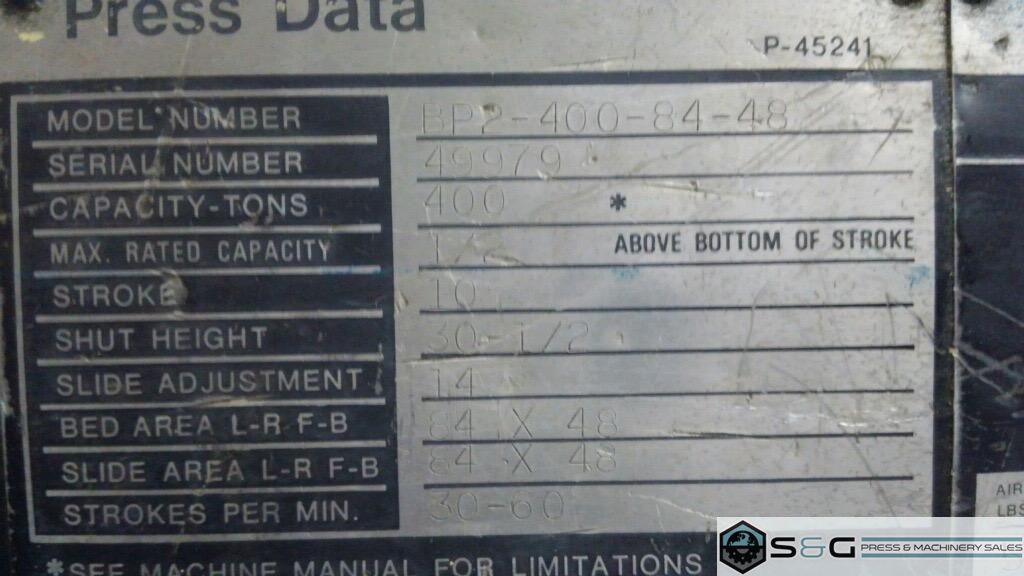 Press Data
P-45241
MODEL NUMBER BP2-400-84-48
SERIAL NUMBER 49979
CAPACITY-TONS 400 *
MAX. RATED CAPACITY ABOVE BOTTOM OF STROKE
STROKE 10
SHUT HEIGHT 30-1/2
SLIDE ADJUSTMENT 14
BED AREA L-R F-B 84 X 48
SLIDE AREA L-R F-B 84 X 48
STROKES PER MIN. 30-60
AIR
LBS
*SEE MACHINE MANUAL FOR LIMITATIONS
S&G PRESS & MACHINERY SALES